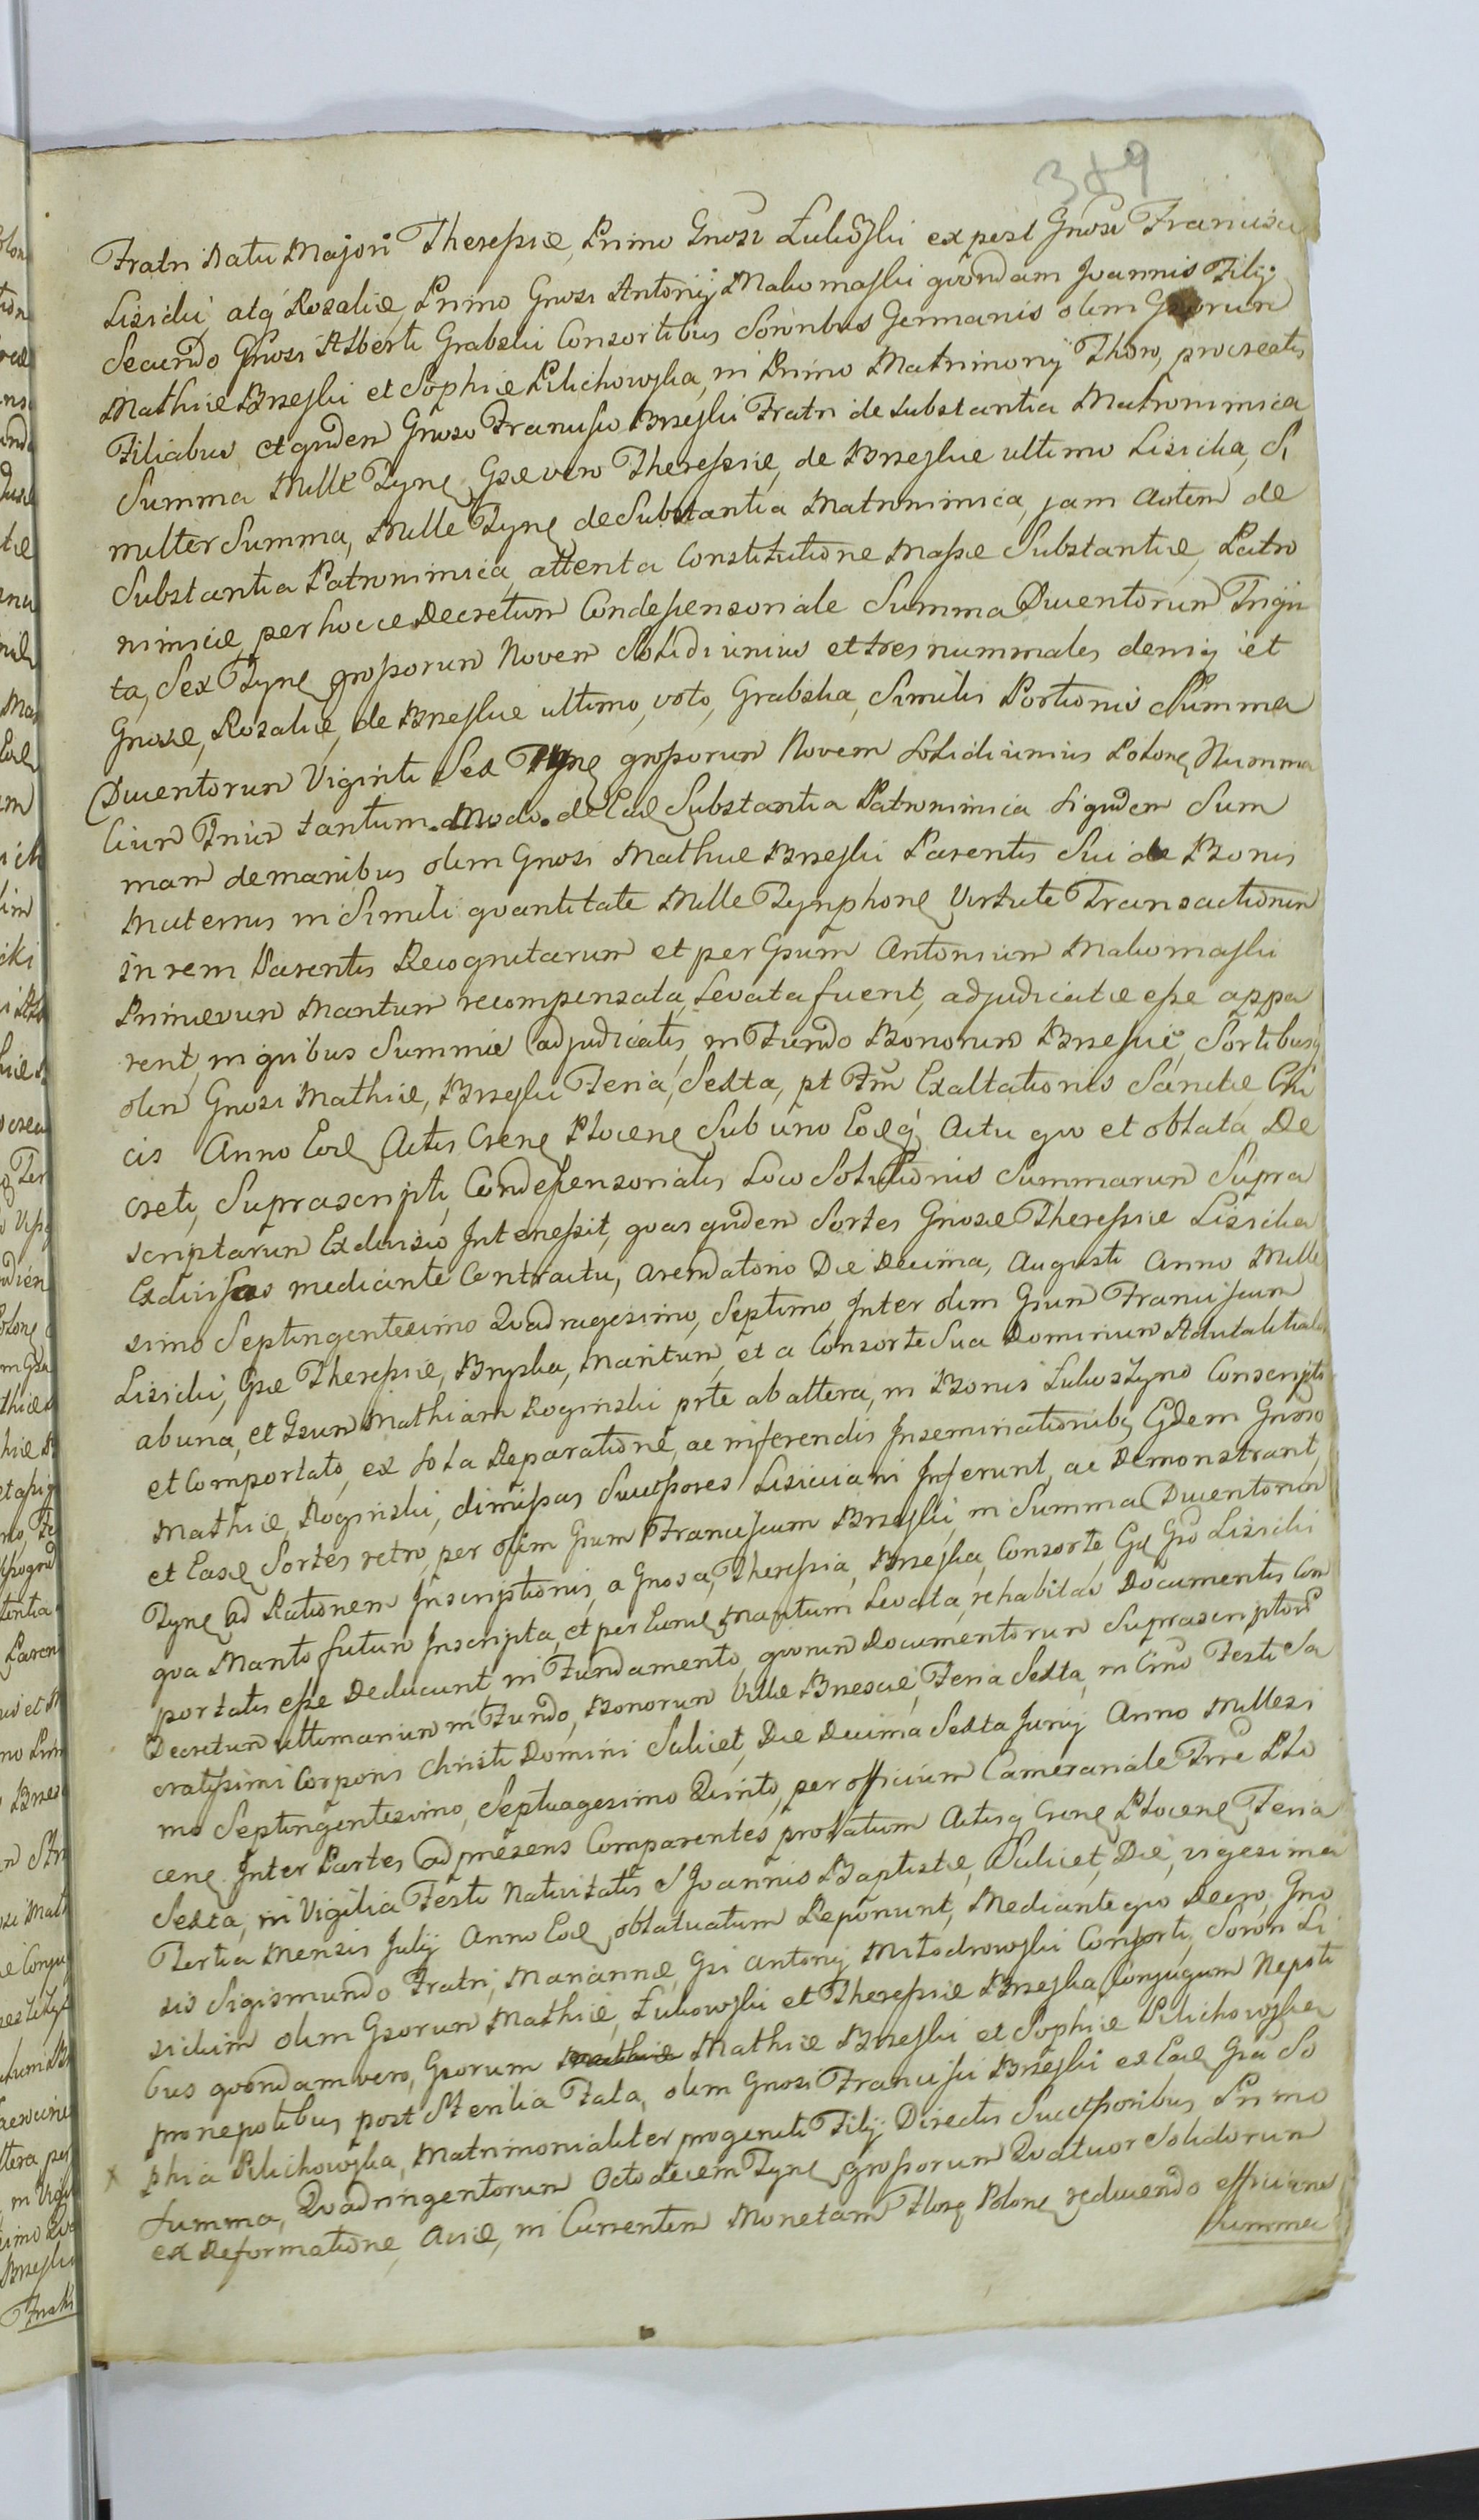 389
Fratri Natu Majori Theressiæ, Primo Gnosi Łukoski ex post Gnosi Francisci
Lisicki, atq Rozaliæ, Primo Gnosi Antonij Makomaski qvondam Joannis Filij
Secundo Gnosi Alberti Grabski Consortibus Sororibus Germanis olim Gsorum
Mathiæ Brzeski et Sophiæ Pilichowska, in Primo Matrimonij Thoro, procreatis
Filiabus, et qvidem Gnoso Francisco Brzeski Fratri de Substantia Matronimica
Summa Mille Tynf Gsæ vero Theressiæ, de Brzeskie ultimo Lisicka, Si
militer Summa, Mille Tynf de Substantia Matronimica, jam autem de
Substantia Patronimica, attenta Constitutione Massæ Substantiæ, Patro
nimicæ, per hocce Decretum Condessensoriale Summa Ducentorum Trigin
ta, Sex Tynf grossorum Novem Solidi unius et tres nummales deniq et
Gnosæ, Rozaliæ, de Brzeskie ultimo, voto, Grabska, Similis Portionis Summa
Ducentorum Viginti Sex Tynf grossorum Novem Solidi unius Polonf Numma
lium Trium tantum Modo de Ead Substantia Patronimica siqvidem Sum
mam de manibus olim Gnosi Mathiæ Brzeski Parentis Sui de Bonis
Maternis in Simili qvantitate Mille Tynphonf Virtute Transactionum
in rem Parentis Recognitarum et per Gsum Antonium Makomaski
Primævum Maritum recompensata, Levata fuerit, adjudicatæ esse appa
rent, in qvibus Summis adjudicatis, in Fundo Bonorum Brzeskie, Sortibusq
olim Gnosi Mathiæ, Brzeski Feria, Sexta, pt Ftm Exaltationis Sanctæ Cru
cis Anno Eod Actis Crenf Plocenf Sub uno Eodq Actu qvo et oblata De
creti, Suprascripti, Condessensorialis Loco Solutionis Summarum Supra
scriptarum Exdivisio Intercessit, qvas qvidem Sortes Gnosæ Theressiæ Lisicka
Exdivisas mediante Contractu, Arendatorio Die Decima, Augusti Anno Mille
simo Septingentesimo Qvadragesimo, Septimo, Inter olim Gsum Franciscum
Lisicki, Gsæ Theressiæ, Brzyska, Maritum, et a Consorte Sua Dominum Advitalitialem
ab una, et Gsum Mathiam Roginski prte ab altera, in Bonis Łukoszyno Conscripto
et Comportato, ex Sola Reparatione, ac inferendis Inseminationibq Eidem Gnoso
Mathiæ, Roginski, dimissas Successores Lisiciani Inferunt, ac Demonstrant,
et Easd Sortes retro, per olim Gsum Franciscum Brzeski, in Summa Ducentorum
Tynf ad Rationem Inscriptionis, a Gnosa, Theressia, Brzeska, Consorte Gsi Lisicki
qva Marito futuro Inscripta, et per Eund Maritum Levata, rehabitas Documentis Com
portatis esse Deducunt, in Fundamento, qvorum Documentorum Suprascriptorum
Decretum ultimarium in Fundo, Bonorum Villæ Brzescie, Feria Sexta, in Crno Festi Sa
cratissimi Corporis Christi Domini Scilicet, Die Decima Sexta Junij Anno Millesi
mo Septingentesimo, Septuagesimo Qvinto, per officium Camerariale Trræ Plo
cenf Inter Partes ad præsens Comparentes prolatum Actisq Crenf Plocenf Feria
Sexta, in Vigilia Festi Nativitatis S Joannis Baptistæ, Scilicet, Die, vigesima
Tertia Mensis Julij Anno Eod, oblatuatum Reponunt, Mediante qvo Decro, Gno
sis Sigismundo Fratri, Mariannæ, Gsi Antonij Młodrowski Consorti, Sorori Li
sickim olim Gsorum Mathiæ, Łukowski et Theressiæ Brzeska Conjugum Nepoti
bus qvondam vero, Gsorum Mathiæ Mathiæ Brzeski et Sophiæ Pilichowska
pronepotibus post Sterilia Fata, olim Gnosi Francisci Brzeski ex Ead Gsa So
phia Pilichowska, Matrimonialiter progeniti Filij Directis Successoribus Primo
Summa, Qvadringentorum Octodecem Tynf grossorum Qvatuor Solidorum
ex Reformatione, Avsæ, in Currentem Monetam Flonf Polonf reducendo efficiend
Summa